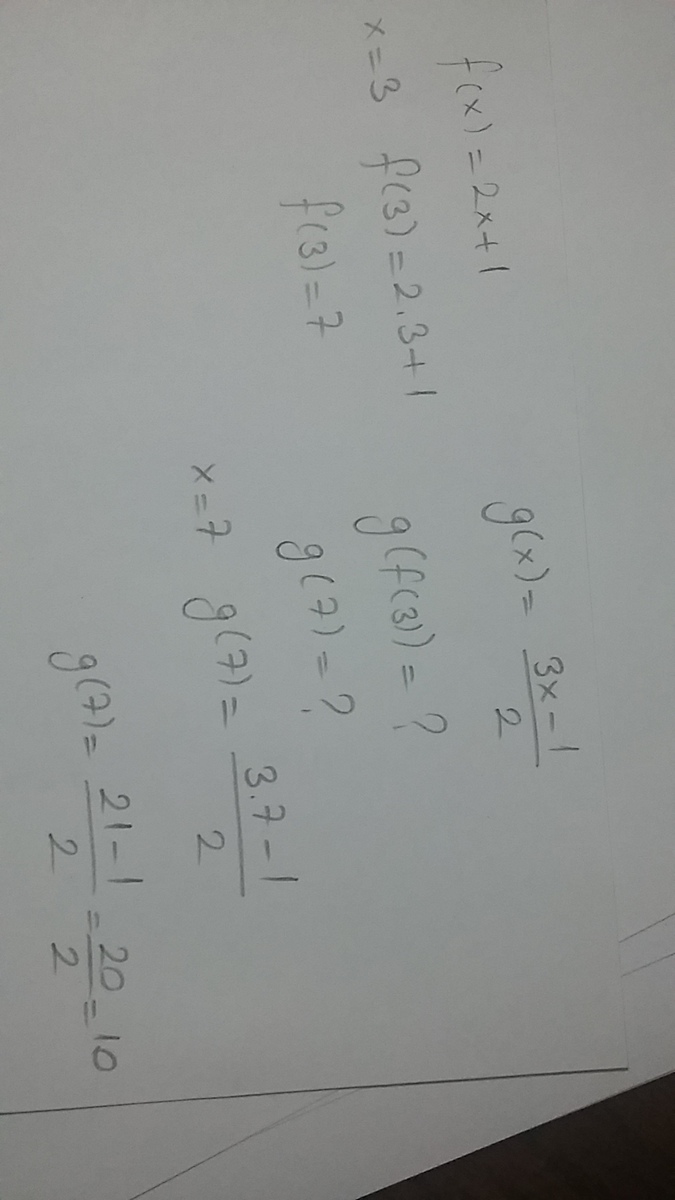 f(x) = 2x+1
x=3 f(3)=2.3+1
f(3)=7
g(x)= \frac{3x-1}{2}
g(f(3))=?
g(7)=?
x=7 g(7)= \frac{3.7-1}{2}
g(7)= \frac{21-1}{2} = \frac{20}{2} = 10